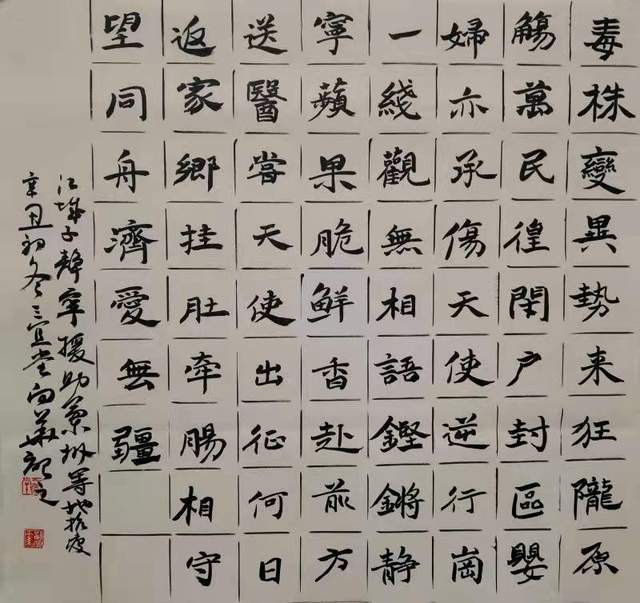 毒株變異勢来狂隴原
觴萬民徨閉户封區嬰
婦亦承傷天使逆行崗
一綫觀無相語鏗鏘静
寧蘋果脆鮮香赴前方
送醫嘗天使出征何日
返家鄉挂肚牽腸相守
望同舟濟愛無疆
江城子靜寧援助蘭州等地抗疫
辛丑初冬三宜堂向英顔之